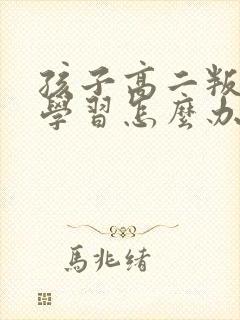 孩子高二叛
學習怎麼办
馬兆绪